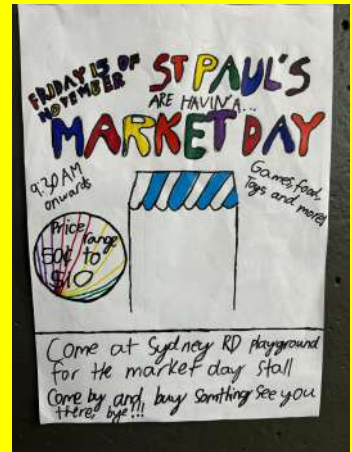 FRIDAY 15 OF
NOVEMBER
ST PAUL'S
ARE HAVIN'A...
MARKET DAY
9:30 AM
onwards
Games, food,
Toys and more!
Price range
50¢ to
$10
Come at Sydney RD playground
for the market day stall
Come by and buy somthing see you
there, bye!!!